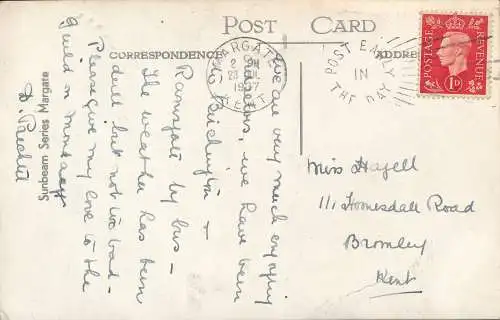 POST CARD
CORRESPONDENCE
ADDRESS
MARGATE
2
1937
KENT
POST EARLY
IN
THE DAY
POSTAGE
REVENUE
1D
We are very much enjoying
ourselves, we have been
to Birchington &
Ramsgate by bus –
The weather has been
dull but not too bad –
Please give my love to the
Guild on Monday
Sunbeam Series Margate
Miss Hazell
111 Homesdale Road
Bromley
Kent